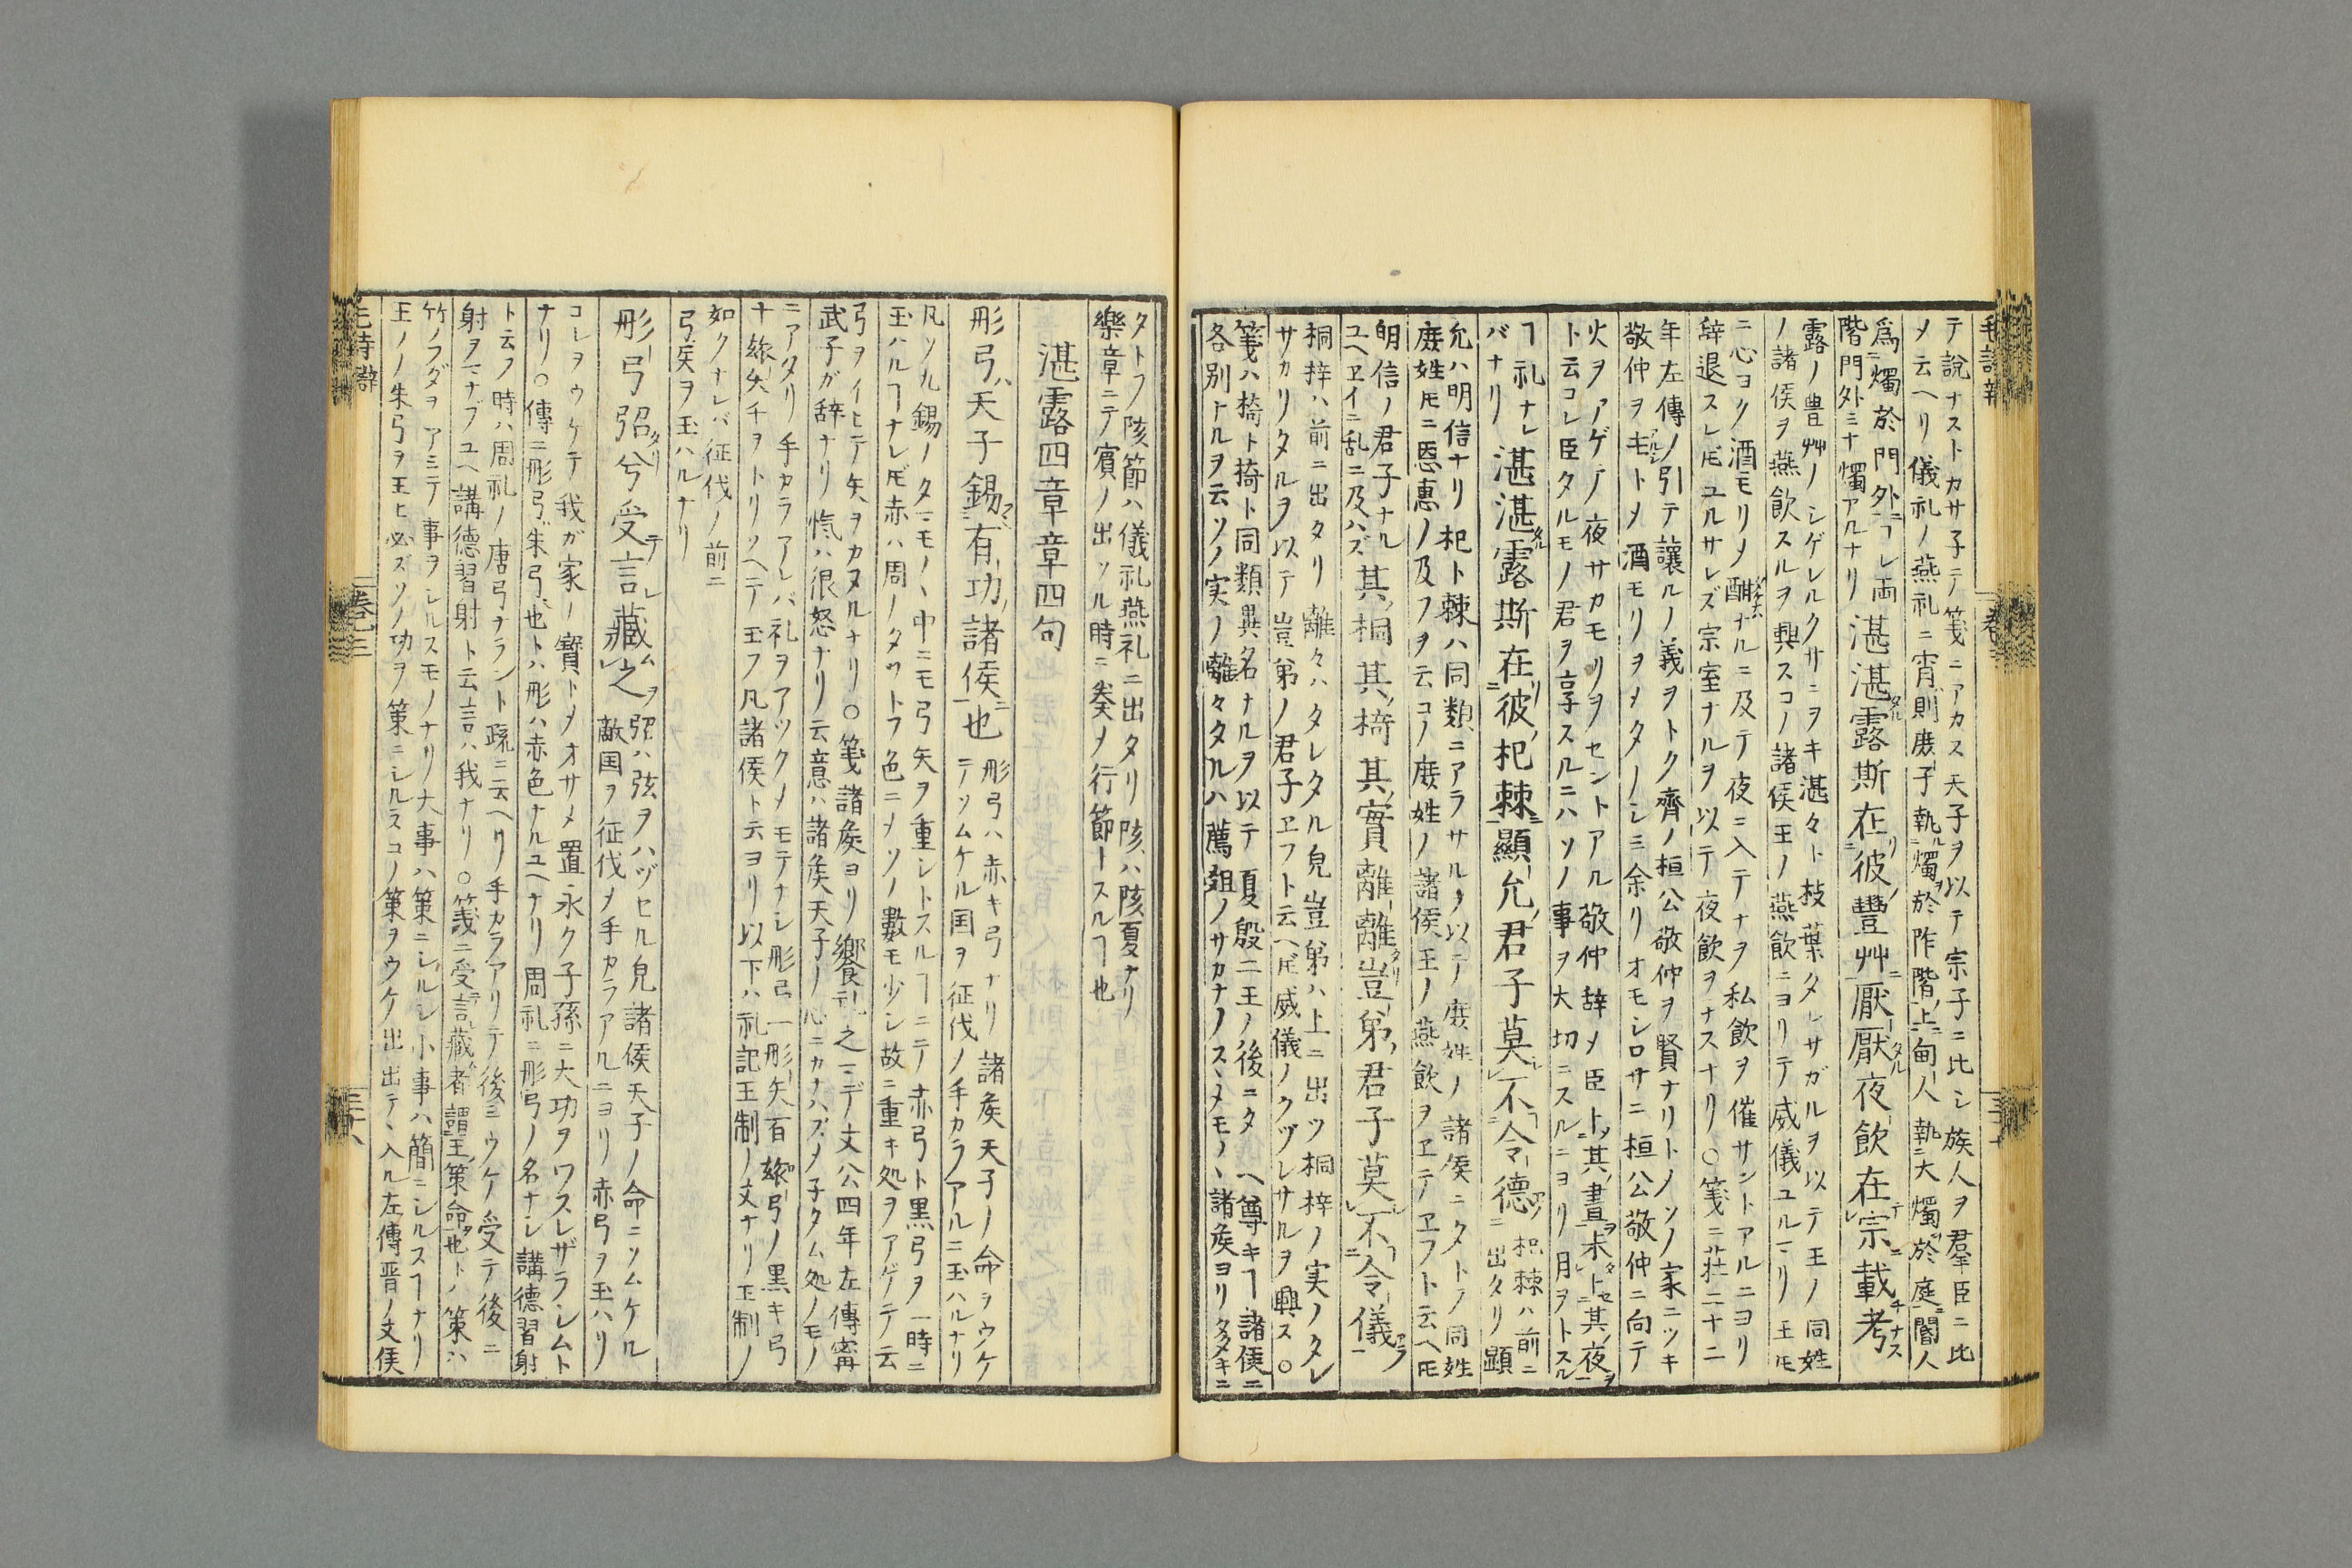 テ説ナストカサ子テ箋ニアカス天子ヲ以テ宗子ニ比シ族人ヲ羣臣ニ比
メ云ヘリ儀礼ノ燕礼ニ宵則庻子執燭於阼階上甸人執大燭於庭閽人
爲燭於門外ヿレ両
階門外ミナ燭アルナリ
湛湛露斯在彼豐艸厭厭夜飲在宗載考
露ノ豊艸ノシゲレルクサニヲキ湛々ト枝葉タレサガルヲ以テ王ノ同姓
ノ諸侯ヲ燕飲スルヲ興スコノ諸侯王ノ燕飲ニヨリテ威儀ユルマリ王𪜈
ニ心ヨク酒モリメ酣ナルニ及テ夜ニ入テナヲ私飲ヲ催サントアルニヨリ
辞退スレ𪜈ユルサレズ宗室ナルヲ以テ夜飲ヲナスナリ○箋ニ荘二十二
年左傳ノ引テ讓ルノ義ヲトク齊ノ桓公敬仲ヲ賢ナリトノソノ家ニツキ
敬仲ヲモトメ酒モリヲメタノシミ余リオモシロサニ桓公敬仲ニ向テ
火ヲアゲテノ夜サカモリヲセントアル敬仲辞メ臣卜其晝未卜其夜
ト云コレ臣タルモノ君ヲ享スルニハソノ事ヲ大切ニスルニヨリ月ヲトスル
ヿ礼ナレ
バナリ
湛湛露斯在彼杞棘顯允君子莫不令德
杞棘ハ前ニ
出タリ顕
允ハ明信ナリ杞ト棘ハ同類ニアラサルヲ以テノ庻姓ノ諸侯ニタトフ同姓
庻姓𪜈ニ恩惠ノ及フヲ云コノ庻姓ノ諸侯王ノ燕飲ヲヱテヱフト云ヘ𪜈
明信ノ君子ナル
ユヘヱイニ乱ニ及ハズ
其桐其椅其實離離豈弟君子莫不令儀
桐梓ハ前ニ出タリ離々ハタレタル皃豈弟ハ上ニ出ツ桐梓ノ実ノタレ
サカリタルヲ以テ豈弟ノ君子ヱフト云ヘ𪜈威儀ノクヅレサルヲ興ス○
箋ハ椅ト椅ト同類異名ナルヲ以テ夏殷二王ノ後ニタ ヘ尊キヿ諸侯ニ
各別トルヲ云ソノ実ノ離々タルハ薦俎ノサカナノスヽメモノヽ諸矦ヨリ多キニ
タトフ陔節ハ儀礼燕礼ニ出タリ陔ハ陔夏ナリ
樂章ニテ賓ノ出ツル時ニ奏メ行節トスルヿ也
湛露四章章四句
彤弓天子錫有功諸侯也
彤弓ハ赤キ弓ナリ諸矦天子ノ命ヲウケ
テソムケル国ヲ征伐ノ手カラアルニ玉ハルナリ
凡ソ九錫ノタマモノヽ中ニモ弓矢ヲ重シトスルヿニテノ赤弓ト黒弓ヲ一時ニ
玉ハルヿナレ𪜈赤ハ周ノタツトフ色ニメソノ數モ少シ故ニ重キ処ヲアゲテ云
弓ヲイヒテ矢ヲカヌルナリ○箋諸矦ヨリ饗礼之マデ文公四年左傳甯
武子ガ辞ナリ愾ハ很怒ナリ云意ハ諸矦天子ノ心ニカナハズメ子タム処ノモノ
ニアタリ手カラアレバ礼ヲアツクメモテナシ彤弓一彤矢百玈弓ノ黒キ弓
十玈矢千ヲトリソヘテ玉フ凡諸侯ト云ヨリ以下ハ礼記王制ノ文ナリ王制ノ
如クナレバ征伐ノ前ニ
弓矦ヲ玉ハルナリ
彤弓弨兮受言藏之
弨ハ弦ヲハヅセル皃諸侯天子ノ命ニソムケル
敵国ヲ征伐メ手カラアルニヨリ赤弓ヲ玉ハリ
コレヲウケテ我ガ家ノ寳トメオサメ置永ク子孫ニ大功ヲワスレザラシムト
ナリ○傳ニ彤弓朱弓也トハ彤ハ赤色ナルユヘナリ周礼ニ彤弓ノ名ナシ講德習射
ト云フ時ハ周礼ノ唐弓ナラント疏ニ云ヘリ手カラアリテ後ニウケノ受テ後ニ
射ヲマナブユヘ講德習射ト云言ハ我ナリ○箋ニ受言藏者謂王策命也トノ策ハ
竹ノフダヲアミテ事ヲシルスモノナリノ大事ハ策ニシルシ小事ハ簡ニシルスヿナリ
王ノノ朱弓ヲ玉ヒ必ズソノ功ヲ策ニシルスコノ策ヲウケ出出テヽ入ル左傳晋ノ文侯
卷之三